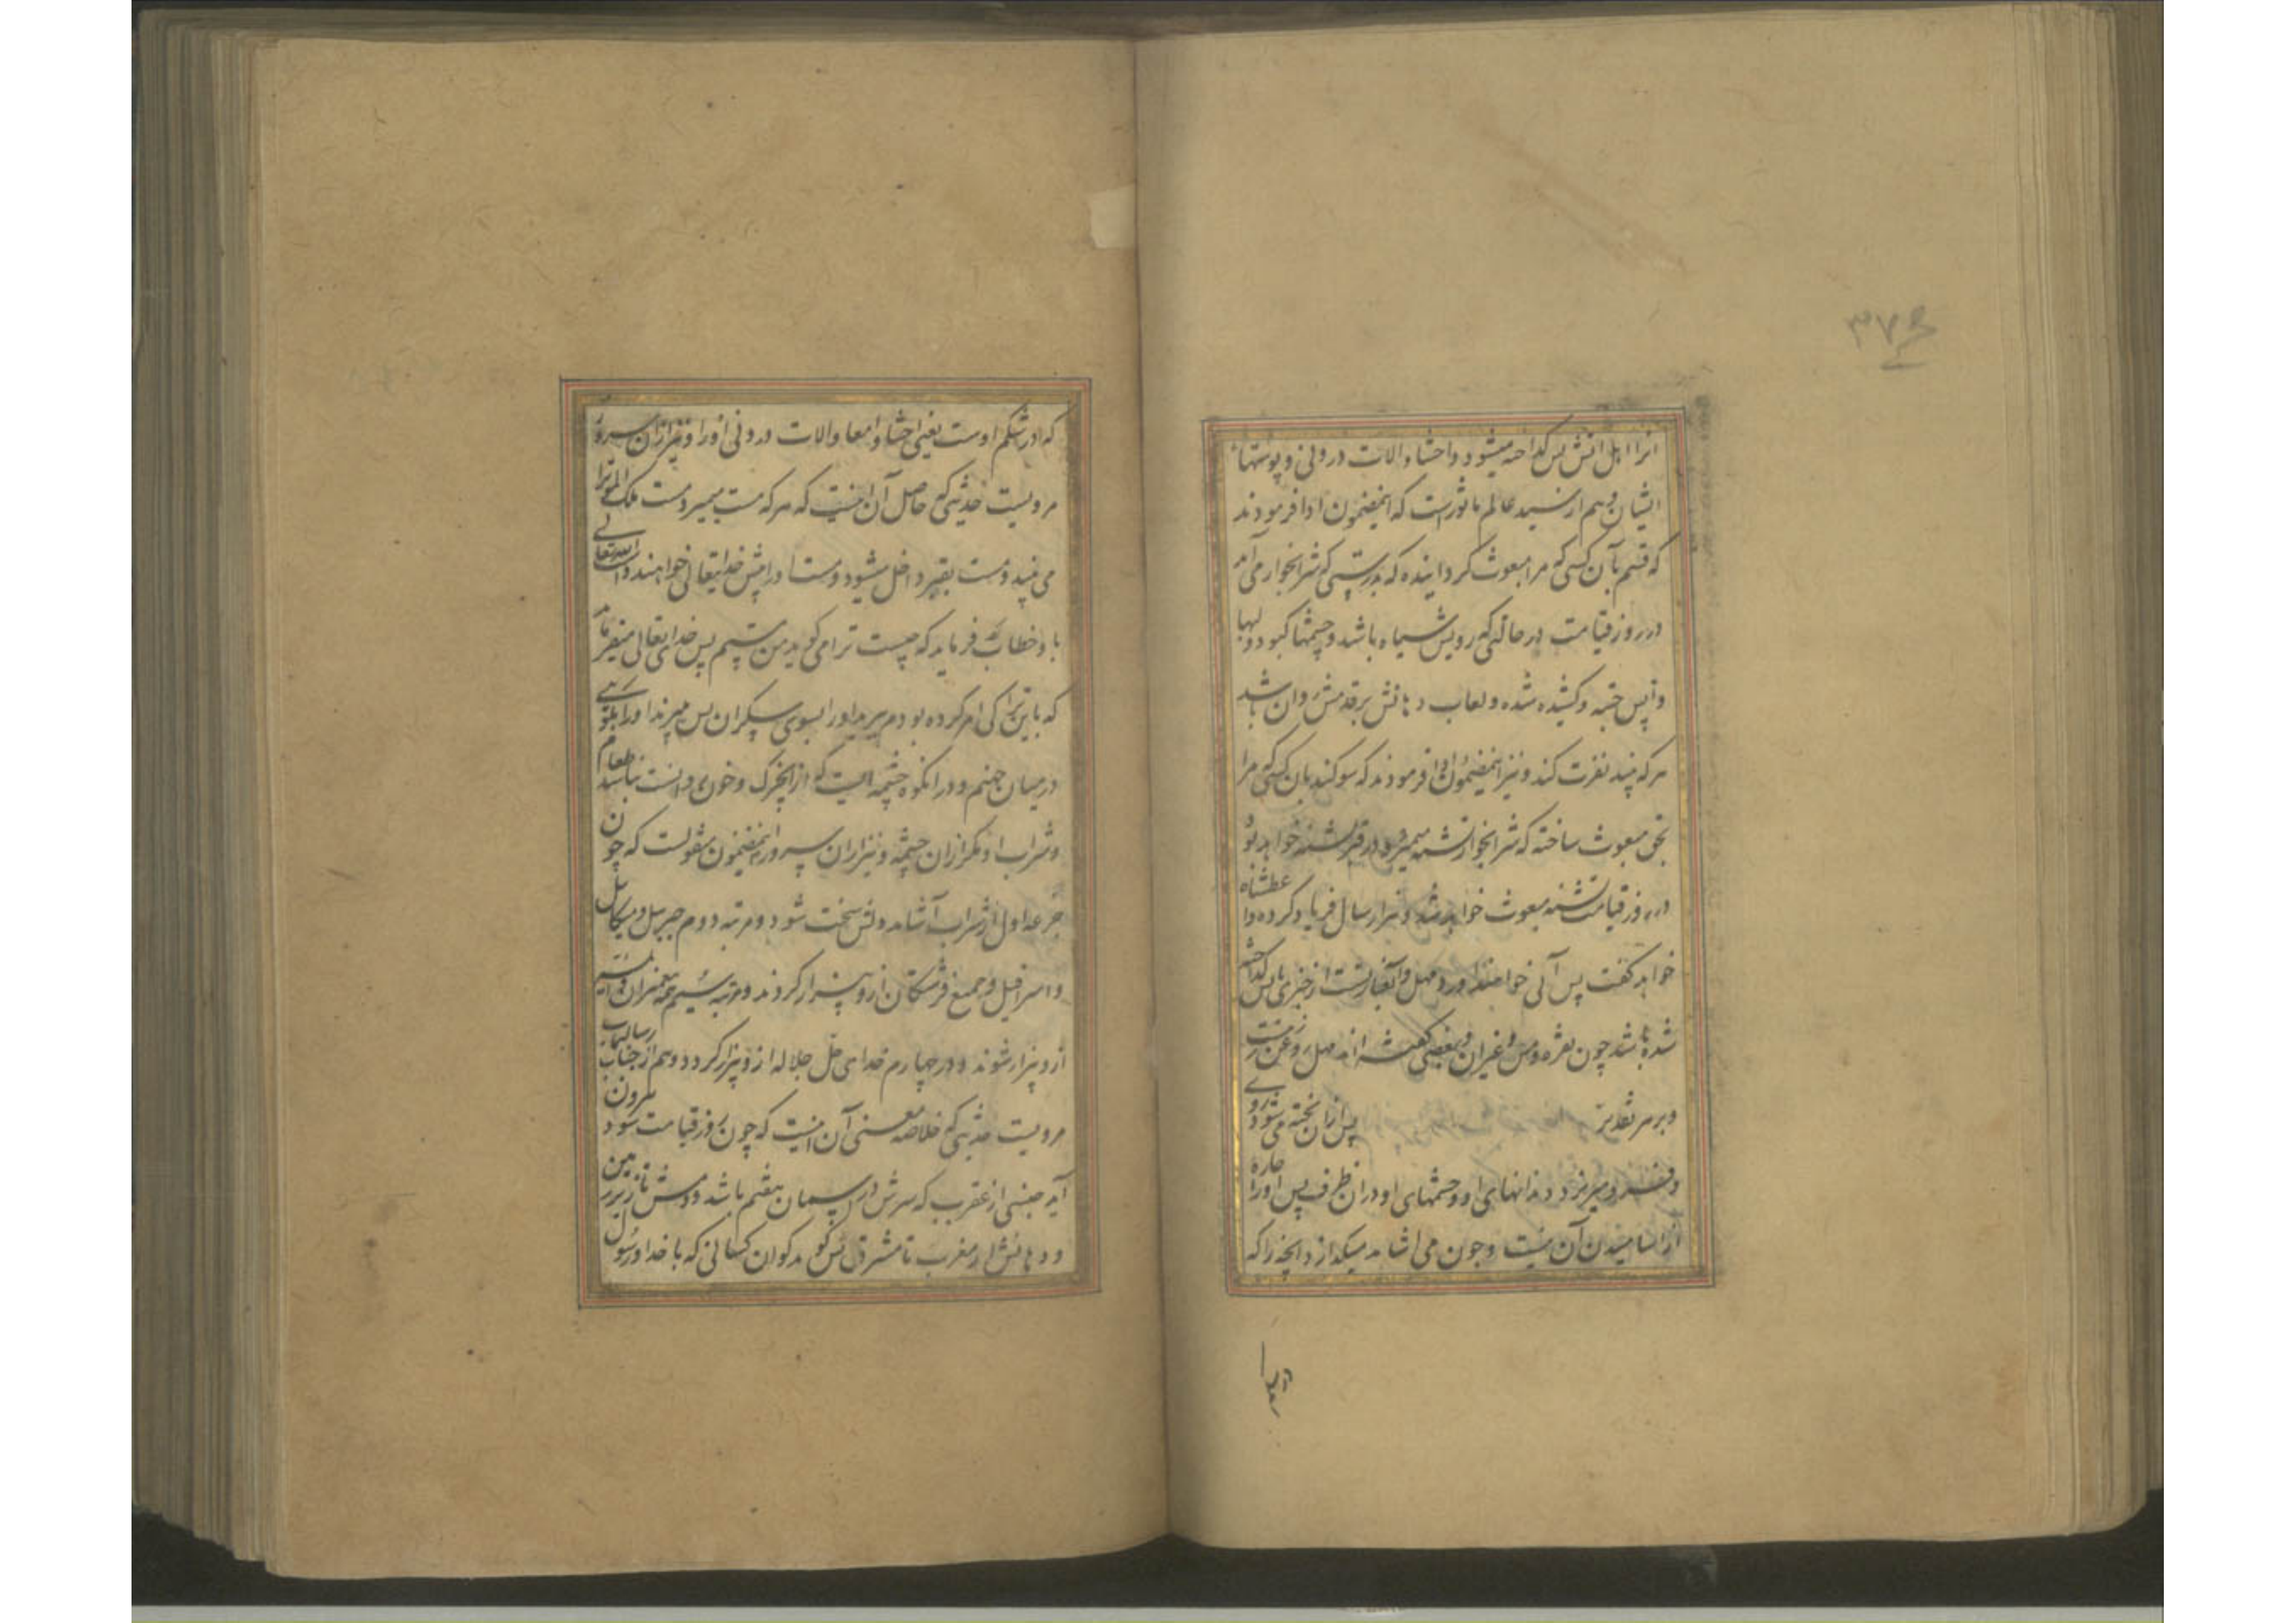 ۳۷۶
انرا اهل اتش پس کداخته میشود واحشا والات درونی و پوستهاء
ایشان وهم از سید عالم ماثورست که اینمضمون ادا فرمودند
که قسم بآن کسی که مرا مبعوث کردانیده که بدرستی که شرابخوار می آمد
در روز قیامت در حالتی که رویش سیاه باشد وچشمها کبود ولبها
واپس خسته وکشیده شده ولعاب دهانش برقدمش روان باشد
هرکه بیند نفرت کند ونیز اینمضمون ادا فرمودند که سوکند بان کسی که مرا
بحق مبعوث ساخته که شرابخوار تشنه میمیرد ودر قبر تشنه خواهد بود
در روز قیامت تشنه مبعوث خواهد شد وهزار سال فریاد کرده واعطشاه
خواهد کفت پس آبی خواهند اورد مهل وآن عبارتست از چیزی که بآتش کداخته
شده باشد چون نقره ومس وغیران وبعضی کفته اند مهل روغن زیت
وبر هر تقدیر پس ازان پخته می شود روی
و میریزد دندانهای او وچشمهای او دران ظرف پس اورا چاره
از اشامیدن آن نیست وچون می اشامد میکدازد انچه را که
در
که در شکم اوست یعنی احشا وامعا والات درونی اورا ونیز ازان سرور
مرویست حدیثی که حاصل آن اینست که هرکه مست بمیرد مست ملک الموترا
می بیند ومست بقبر داخل میشود ومست اورا پیش خدایتعالی خواهند داشت الله تعالی
با او خطاب فرماید که چیست ترا می کوید من مستم پس خدای تعالی میفرماید
که باین ترا کی امر کرده بودم ببرید اورا بسوی سکران پس میبرند اورا بکوهی
در میان جهنم ودر انکوه چشمه ایست که از انچرک وخون روانست نباشد طعام
وشراب او مکر ازان چشمه ونیز ازان سرور اینمضمون منقولست که چون
جرعه اول از شراب آشامد دلش سخت شود ومرتبه دوم جبرییل ومیکاییل
واسرافیل وجمیع فرشتکان ازو بیزار کردند ومرتبه سیم همه پیغمبران وایمه
ازو بیزار شوند ودر چهارم خدای جل جلاله ازو بیزار کردد وهم از جناب رسالتماب
مرویست حدیثی که خلاصه معنی آن اینست که چون روز قیامت شود بیرون
آید جنسی از عقرب که سرش در اسمان هفتم باشد ودمش تا زیر زمین
ودهانش از مغرب تا مشرق پس کوید کوان کسانی که با خدا ورسول